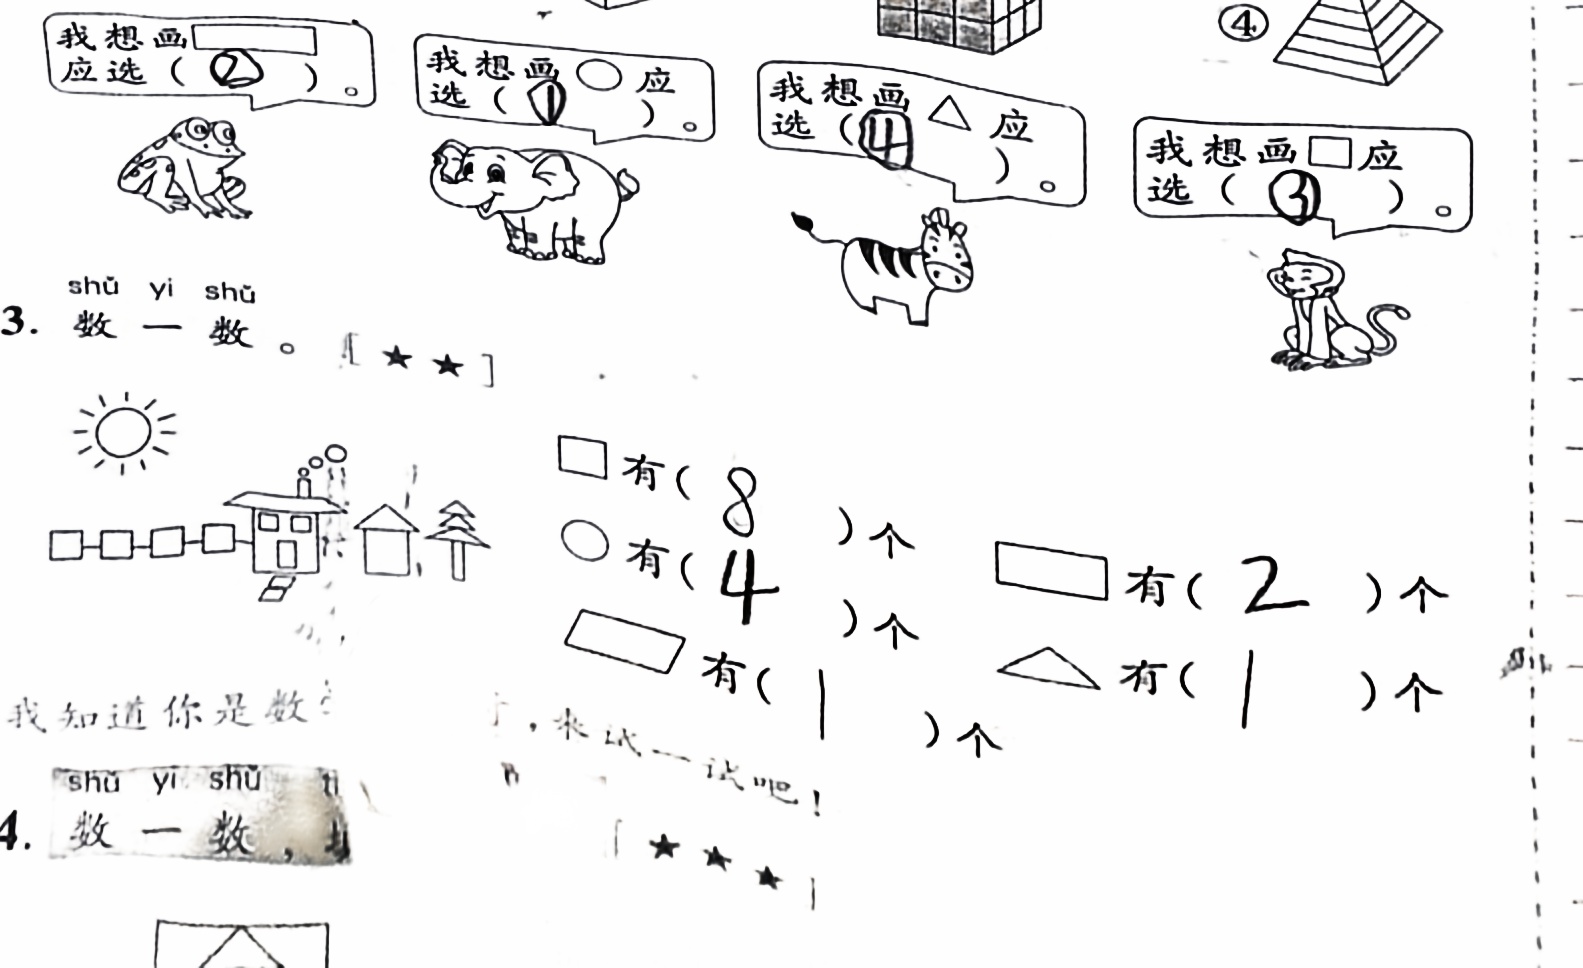 ④
我想画
应选(② )。
我想画 应
选(① )。
我想画 应
选(④ )。
我想画 应
选( ③ )。
shǔ yi shǔ
3. 数一数。[★★]
有( 8 )个
有( 4 )个
有( 1 )个
有( 2 )个
有( 1 )个
我知道你是数 ,来试一试吧!
shǔ yi shǔ
4. 数一数, [★★★]